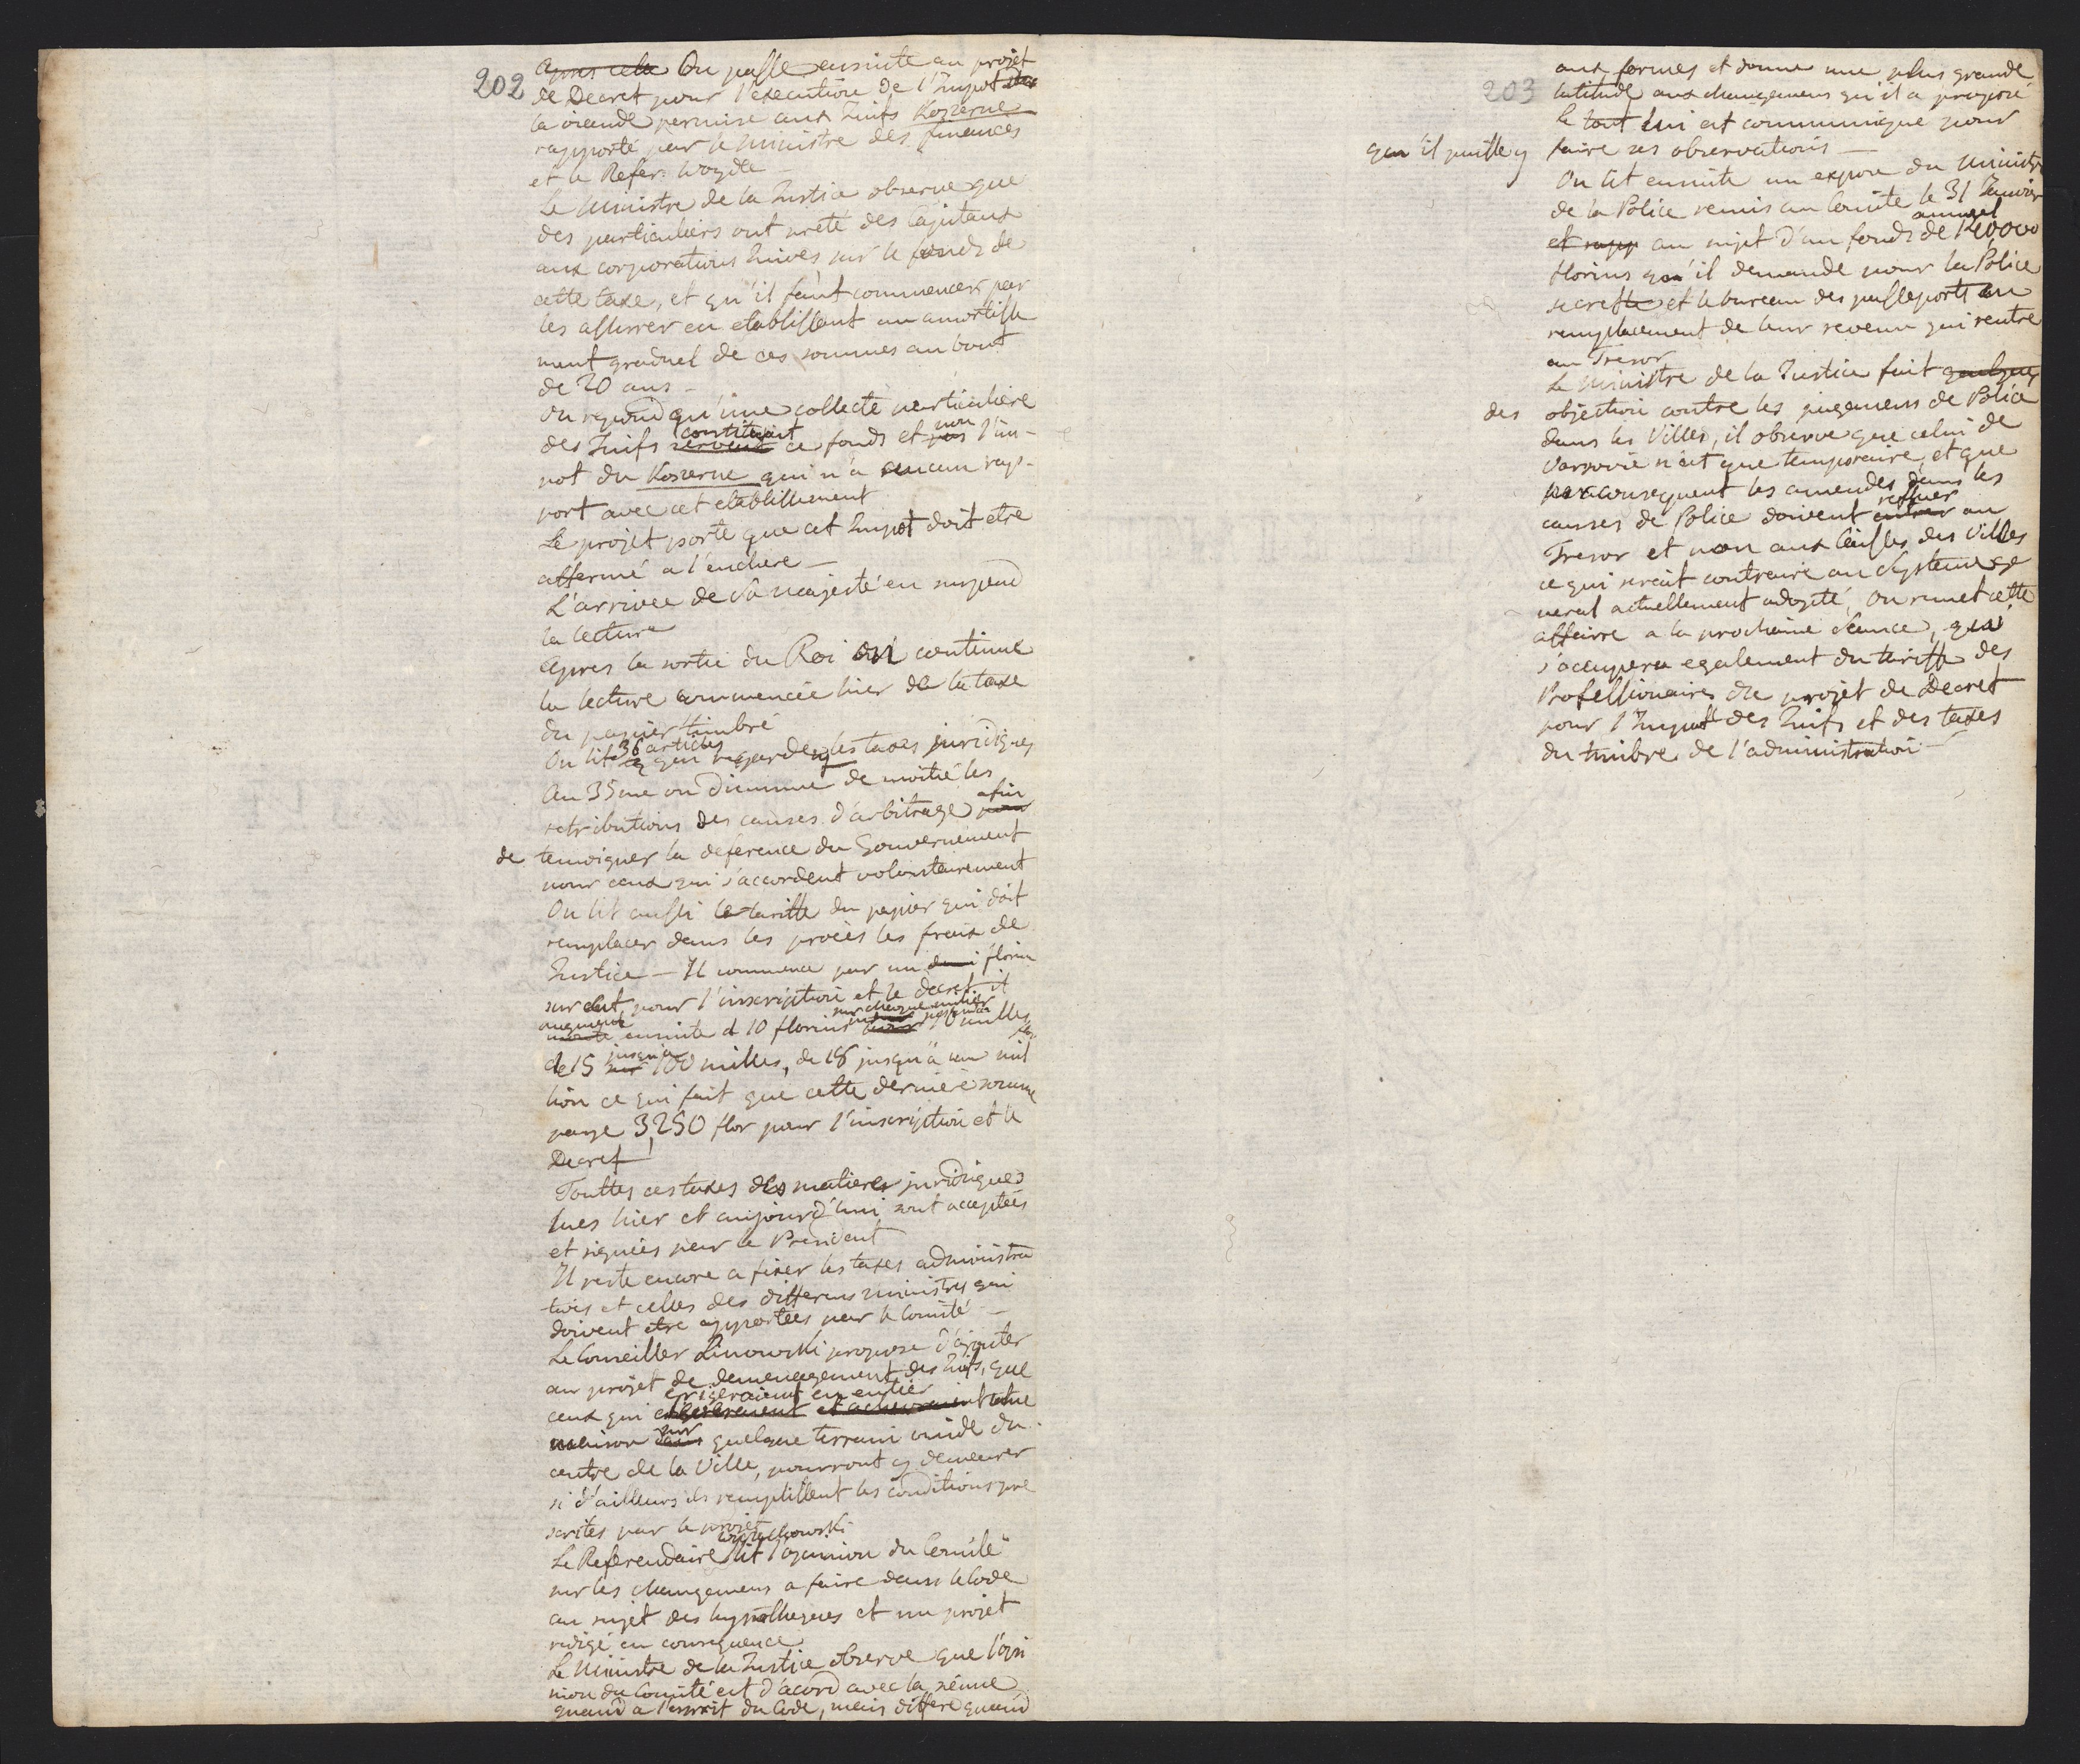 202
apres cela On passe ensuite au projet
de Decret pour l'execution de l'Impot des
la viande permise aux Juifs Koszerne
rapporté par le Ministre des finances
et le Refer: Woyde
Le Ministre de la Justice observe que
des particuliers ont preté des Capitaux
aux corporations Juives sur le fonds de
cette taxe, et qu'il faut commencer par
les assurer en etablissant un amortisse
ment graduel de ces sommes au bout
de 20 ans –
On repond qu'une collecte particuliere
des Juifs servent constituent ce fonds et pas non l'im-
pot du Koszerne qui n'a aucun rap-
port avec cet etablissement
Le projet porte que cet Impot doit etre
affermé a l'enchere –
L'arrivée de Sa Majesté en suspend
la lecture
apres la sortie du Roi on continue
la lecture commencée hier de la taxe
du papier timbré
On lit 36 articles qui regardent les taxes juridiques
Au 35me on diminue de moitié les
retributions des causes d'arbitrage pour afin
de temoigner la deference du Gouvernement
pour ceux qui s'accordent volontairement
On lit aussi le tariffe du papier qui doit
remplacer dans les procès les fraix de
Justice – Il commence par un demi florin
sur cent, pour l'inscription et le decret it
monte augmente ensuite d 10 florins sur chaque millier jusqu'a 10 milles
de 15 sur jusqu'a 100 milles, de 18 jusqu'a un mil
lion ce qui fait que cette derniere somme
paye 3250 flor pour l'inscription et le
Decret!
Touttes ces taxes des matieres juridiques
lues hier et aujourd'hui sont acceptées
et signées par le President
Il reste encore a fixer les taxes administra
tives et celles des differens ministres qui
doivent etre apportées par le Comité –
Le Conseiller Linowski propose d'ajouter
au projet de demenagement des Juifs, que
ceux qui erigeraient en entier et acheveraient une
maison dans sur quelque terrain vuide du
centre de la Ville, pourront y demeurer
si d'ailleurs ils remplissent les conditions pre
scrites par le projet
Le Referendaire lit l'opinion du Comité
sur les changemens a faire dans le Code
au sujet des hypotheques et un projet
redigé en consequence
Le Ministre de la Justice observe que l'opi
nion du Comité est d'acord avec la sienne
quand a l'esprit du Code, mais differe quand
203
aux formes et donne une plus grande
latitude aux changemens qu'il a proposé
le tout lui est communiqué pour
qu'il puisse y faire ses observations –
On lit ensuite un exposé du Ministre
de la Police remis au Comité le 31 Janvier
et rapp au sujet d'un fonds annuel de 120000
florins qu'il demande pour la Police
secrette et le bureau des passeports en
remplacement de leur revenu qui rentre
au Tresor
Le Ministre de la Justice fait quelques
des objection contre les jugemens de Police
dans les Villes, il observe que celui de
Varsovie n'est que temporaire, et que
par consequent les amendes dans les
causes de Police doivent entrer refluer au
Tresor et non aux Caisses des Villes
ce qui serait contraire au Systeme ge
neral actuellement adopté, On remet cette
affaire a la prochaine seance, qui
s'occupera egalement du tariffe des
Professionaires du projet de Decret
pour l'Impott des Juifs et des taxes
du timbre de l'administration –